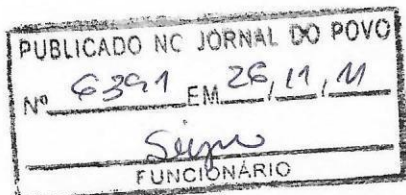 PUBLICADO NC JORNAL DO POVO
Nº 6391 EM 26/11/11
FUNCIONÁRIO